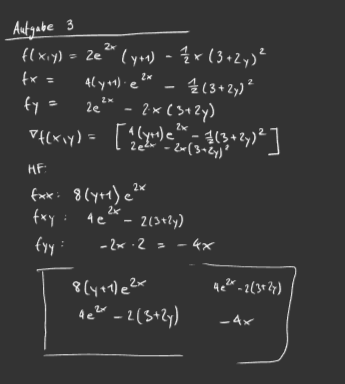 Aufgabe 3
f(x,y) = 2e^{2x} (y+1) - ½x (3+2y)²
fx = 4(y+1)·e^{2x} - ½(3+2y)²
fy = 2e^{2x} - 2x(3+2y)
∇f(x,y) = [4(y+1)e^{2x} - ½(3+2y)²
2e^{2x} - 2x(3+2y)²]
HF:
fxx: 8(y+1)e^{2x}
fxy: 4e^{2x} - 2(3+2y)
fyy: -2x·2 = -4x
8(y+1)e^{2x} 4e^{2x} - 2(3+2y)
4e^{2x} - 2(3+2y) -4x